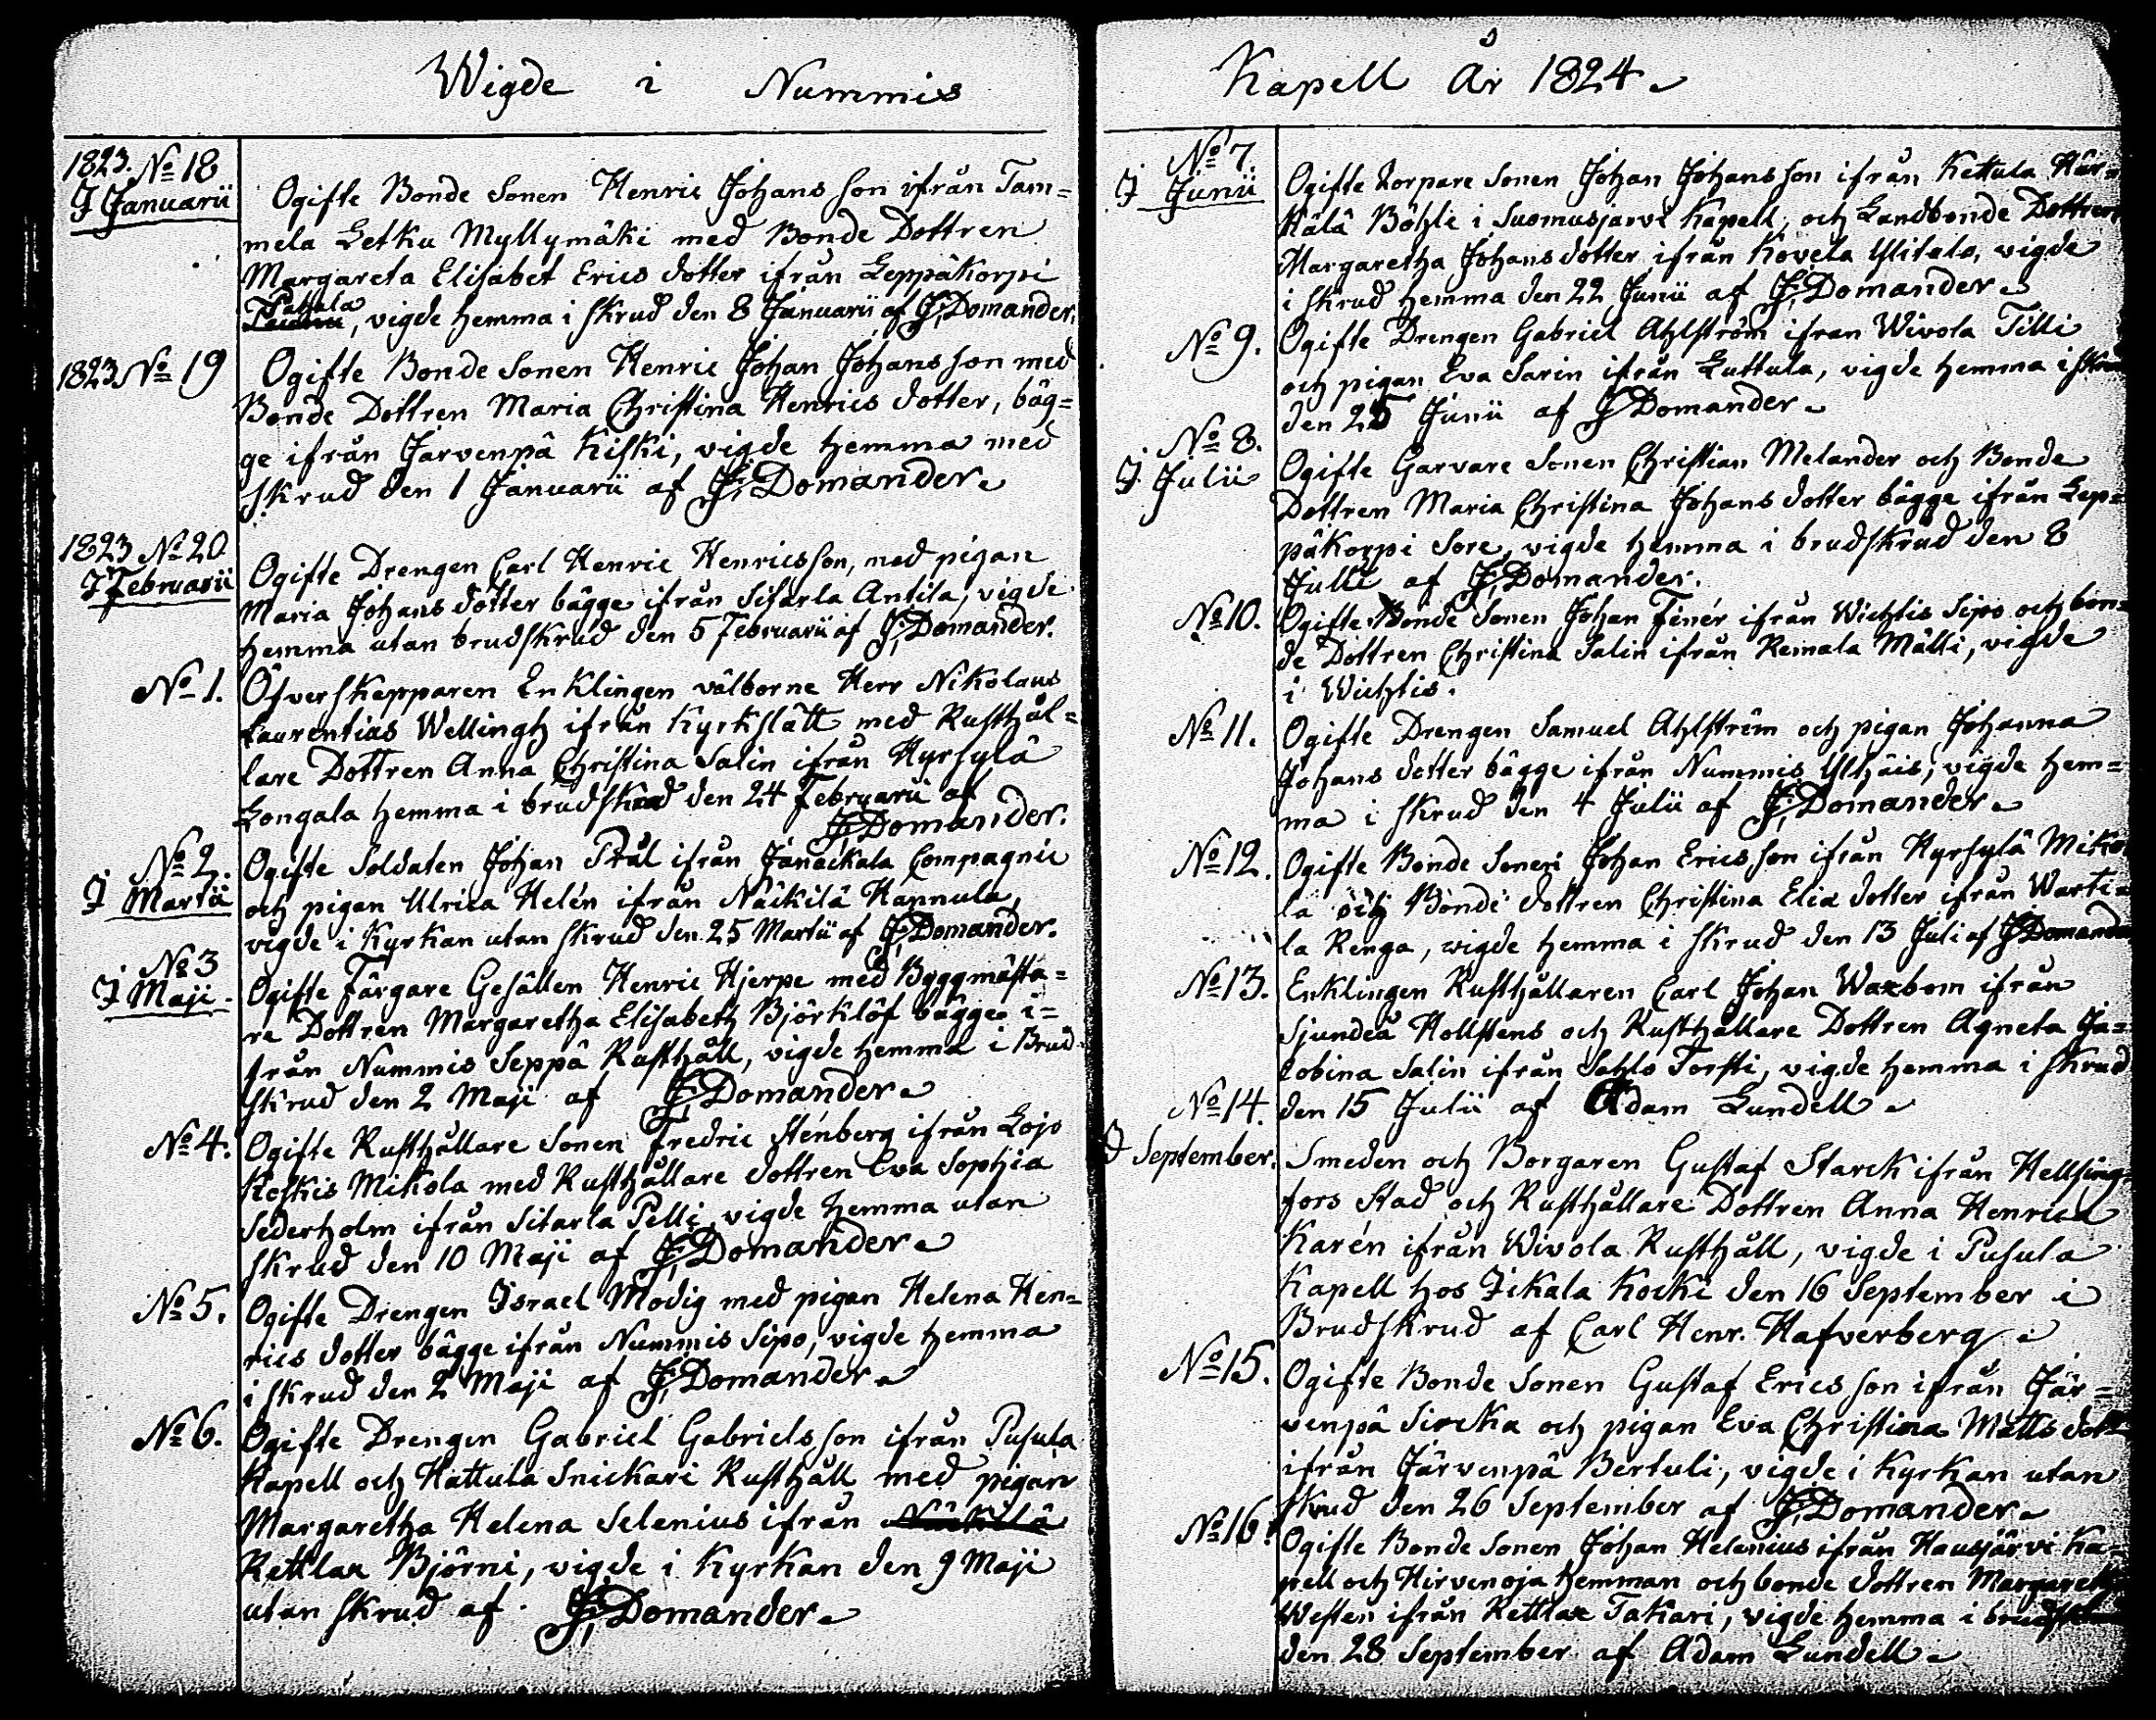 Wigde i Nummis
1823. No 18
I Januarii
Ogifte Bonde Sonen Henric Johans son ifrån Tam=
mela Letku Myllymäki med Bonde Dottren
Margareta Elisabet Erics dotter ifrån Leppäkorpi
Pattala, vigde hemma i skrud den 8 Januarii af J. Domander.
1823 No 19
Ogifte Bonde Sonen Henric Johan Johansson med
Bonde Dottren Maria Christina Henrics dotter, båg=
ge ifrån Järvenpä Kiski, vigde hemma med
skrud den 1 Januarii af J. Domander.
1823 No 20
I Februarii
Ogifte Drengen Carl Henric Henricsson, med pigan
Maria Johans dotter bägge ifrån Sitarla Antila, vigde
hemma utan brudskrud den 5 Februarii af J. Domander.
No 1.
Öfverskepparen Enklingen välborne Herr Nikolaus
Laurentius Wellingh ifrån Kyrkslätt med Rusthål=
lare Dottren Anna Christina Salin ifrån Hyrsylä
Longala hemma i brudskrud den 24 Februarii af
J. Domander.
No 2.
I Martii
Ogifte Soldaten Johan Prål ifrån Janackala Compagnie
och pigan Ulrica Helén ifrån Näckilä Hannula,
vigde i Kyrkan utan skrud den 25 Martii af J. Domander.
No 3
I Maji
Ogifte Färgare Gesällen Henric Hjerpe med Byggmästa=
re Dottren Margaretha Elisabeth Björklöf bägge i=
från Nummis Seppä Rusthåll, vigde hemma i Brud
skrud den 2 Maji af J. Domander
No 4.
Ogifte Rusthållare Sonen Fredric Sténberg ifrån Lojo
Koskis Mikola med Rusthållare dottren Eva Sophia
Sederholm ifrån Sitarla Pelli, vigde hemma utan
skrud den 10 Maji af J. Domander
No 5.
Ogifte Drengen Israel Modig med pigan Helena Hen=
rics dotter bägge ifrån Nummis Sipo, vigde hemma
i skrud den 2 Maji af J. Domander
No 6.
Ogifte Drengen Gabriel Gabrielsson ifrån Pusula
Kapell och Hattula Snickari Rusthåll med pigan
Margaretha Helena Selenius ifrån Näckilä
Rettlax Björni, vigde i Kyrkan den 9 Maji
utan skrud af J. Domander
Kapell År 1824
No 7.
I Junii
Ogifte torpare Sonen Johan Johansson ifrån Kettula Här=
kälä Böhle i Suomusjarvi Kapell, och Landbonde Dottren
Margaretha Johans dotter ifrån Kovela Ylitalo, vigde
i skrud hemma den 22 Junii af J. Domander
No 9.
Ogifte Drengen Gabriel Ahlström ifran Wivola Tilli
och pigan Eva Sarin ifrån Luttula, vigde hemma i skrud
den 25 Junii af J. Domander
No 8.
I Julii
Ogifte Garvare Sonen Christian Melander och Bonde
Dottren Maria Christina Johans dotter bägge ifrån Lep=
päkorpi Sore, vigde hemma i brudskrud den 8
Julii af J. Domander.
No 10.
Ogifte Bonde Sonen Johan Finér ifrån Wichtis Sipo och bon=
de Dottren Christina Salin ifrån Remala Mälli, vigde
i Wichtis.
No 11.
Ogifte Drengen Samuel Ahlström och pigan Johanna
Johans dotter bägge ifrån Nummis Ylhäis, vigde hem=
ma i skrud den 4 Julii af J. Domander
No 12.
Ogifte Bonde Sonen Johan Ericsson ifrån Hyrsylä Miko
la och Bonde dottren Christina Elia dotter ifrån Warti=
la Renga, vigde hemma i skrud den 13 Juli af J. Domander
No 13.
Enklingen Rusthållaren Carl Johan Waxbom ifrån
Sjundeå Hollstens och Rusthållare Dottren Agneta Ja=
cobina Salin ifrån Sahlo Torsti, vigde hemma i skrud
den 15 Julii af Adam Lundell
No 14.
I September.
Smeden och Borgaren Gustaf Starck ifrån Hellsing=
fors Stad och Rusthållare Dottren Anna Henrica
Karén ifrån Wivola Rusthåll, vigde i Pusula
Kapell hos Ikala Kocki den 16 September i
Brudskrud af Carl Henr. Hafverberg
No 15.
Ogifte Bonde Sonen Gustaf Erics son ifrån Jär=
venpä Sircka och pigan Eva Christina Matts dott
ifrån Järvenpä Bertuli, vigde i Kyrkan utan
skrud den 26 September af J. Domander
No 16.
Ogifte Bonde Sonen Johan Helenius ifrån Hausjärvi Ka=
pell och Hirvenoja hemman och bonde dottren Margareth
Westen ifrån Rettlax Takari, vigde hemma i brudsk
den 28 September af Adam Lundell